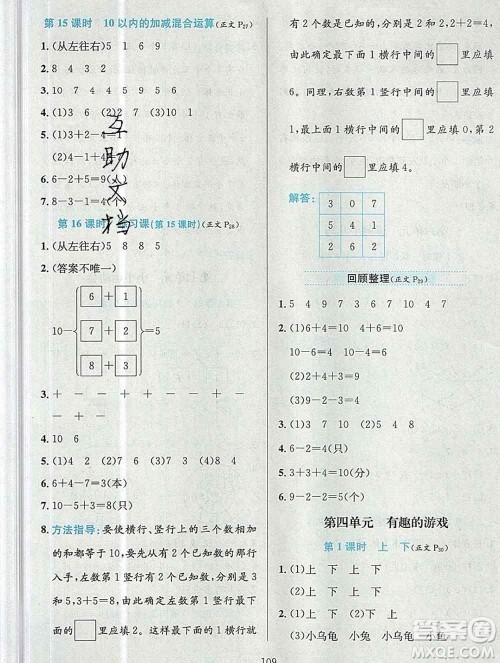 第 15 课时 10 以内的加减混合运算(正文 P27)
1. (从左往右)5 1 6 9
2. 8 3 4 3
3. 10 7 4 6 9 7
4. (1)3 6 (2)2 7 (3)10 1
5. (1)3+2-4=1
(2)4-1+4=
6. 6-2+5=9(个)
7. 8-4-3=1(个)
互助文档
第 16 课时 练习课(第 15 课时)(正文 P28)
1. (从左往右)5 8 8 5
2. (答案不唯一)
6 + 1
10- 7 + 2 =5
8 + 3
3. + - + - + -
+ - - + - -
4. 10 6
5. (1)4 2 (2)7 1 (3)2 4
6. 6+4-7=3(只)
7. 10-5-3=2(本)
8. 方法指导:要使横行、竖行上的三个数相加的和都等于 10,要先从有 2 个已知数的那行入手,左数第 1 竖行上有 2 个已知数,分别是 3 和 5,3+5=8,8+2=10,由此确定左数第 1 竖行下面的□里应填 2。这样最下面的横行就有
2 个已知数,分别是 2 和 2,2+2=4,4+6=10,由此确定最下面的 1 横行中间的□里应填 6。同理,右数第 1 竖行中间的□里应填 1,最上面的 1 横行中间的□里应填 0,中间的 1 横行中间的□里应填 4。
解答:
3 0 7
5 4 1
2 6 2
回顾整理(正文 P29)
1. 5 4 9 7 3 10 4 7
2. (1)4+6=10 6+4=10
10-6=4 10-4=6
(2)2+4+3=9
(3)9-2-2=5
3. 6-2+4=8(只)
4. 10 7 6 8
5. 1+2+3=6(个)
6. 9-2-2=5(只)
第四单元 有趣的游戏
第 1 课时 上 下(正文 P30)
1. (1)上 下 上 下
(2)上 下 下 上
2. (1)小乌龟 小兔 小乌龟 小兔
109